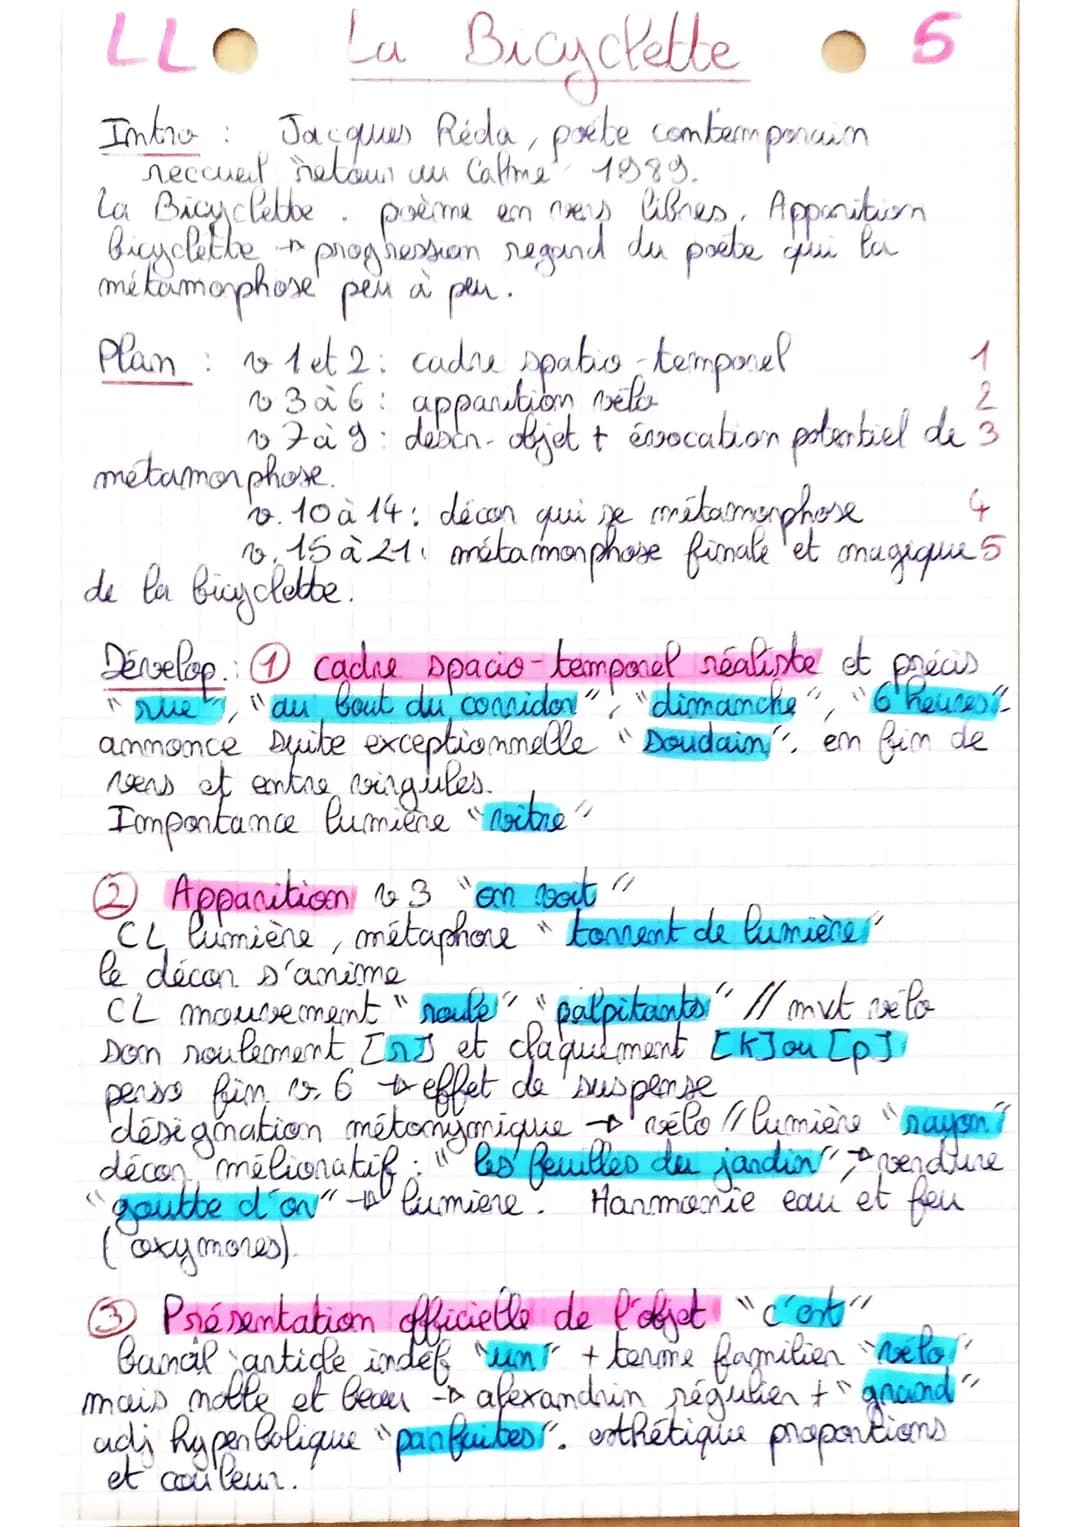 LL La Bicyclette 5
Intro : Jacques Réda, poète contemporain
reccueil "retour au Calme" 1989.
La Bicyclette . poème en vers libres. Apparition
bicyclette → progression regard du poète qui la
métamorphose peu à peu.
Plan : v 1 et 2 : cadre spatio-temporel 1
v 3 à 6 : apparition vélo 2
v 7 à 9 : descr- objet + évocation potentiel de 3
métamorphose.
v. 10 à 14 : décor qui se métamorphose 4
v. 15 à 21 : métamorphose finale et magique 5
de la bicyclette.
Dévelop. : ① cadre spacio-temporel réaliste et précis
"rue", "au bout du corridor", "dimanche", "6 heures"
annonce suite exceptionnelle "Soudain", en fin de
vers et entre virgules.
Importance lumière "vitre"
② Apparition v 3 "on voit"
CL lumière, métaphore "torrent de lumière"
le décor s'anime
CL mouvement "roule" "palpitants" // mvt vélo
son roulement [r] et claquement [k] ou [p]
perso fin v. 6 → effet de suspense
désignation métonymique → vélo // lumière "rayon"
décor mélioratif : "les feuilles du jardin" → verdure
"goutte d'or" → lumière. Harmonie eau et feu
(oxymores).
③ Présentation officielle de l'objet "c'est"
banal : article indéf "un" + terme familier "vélo"
mais noble et beau → alexandrin régulier + "grand"
adj hyperbolique "parfaites". esthétique proportions
et couleur.